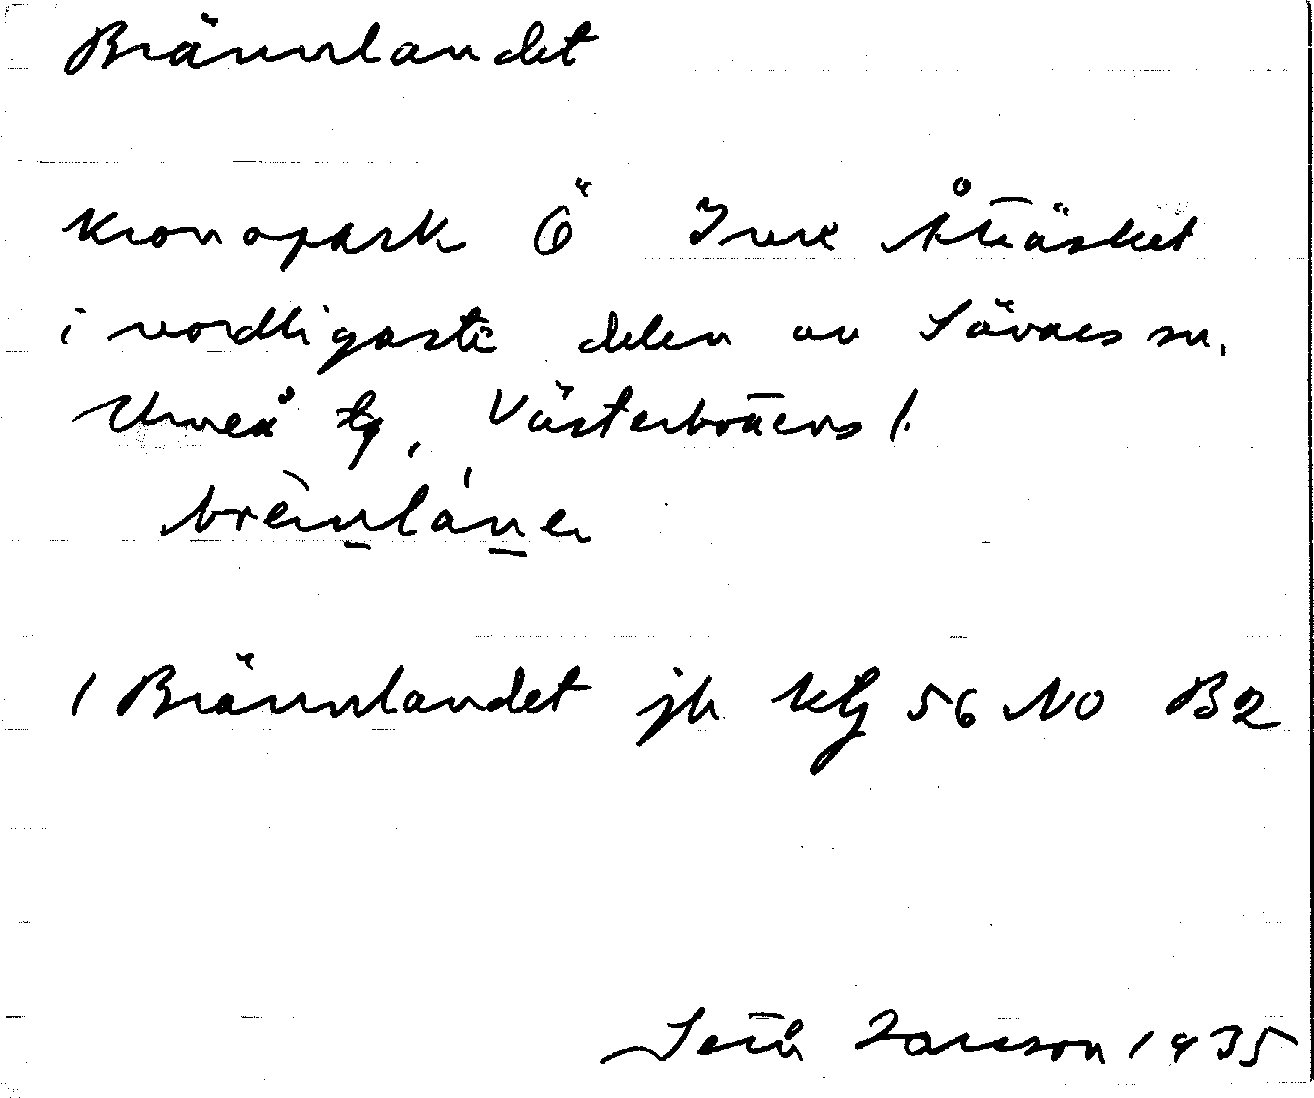 Brännlandet
kronopark Ö Inre Åträsket
i nordligaste delen av Sävars sn,
Umeå tg, Västerbottens l.
1 Brännlandet jb kbl 56 NO B2
Larsson 1935